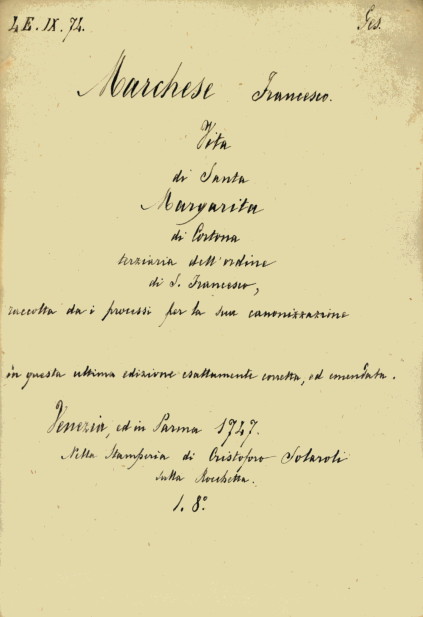 4 E. IX. 74.
Ges.
Marchese Francesco.
Vita
di Santa
Margarita
di Cortona
terziaria dell'ordine
di S. Francesco,
raccolta da i processi per la sua canonizzazione
in questa ultima edizione esattamente corretta, ed emendata.
Venezia, ed in Parma 1747.
Nella Stamperia di Cristoforo Solaroli
sulla Rocchetta.
1. 8°